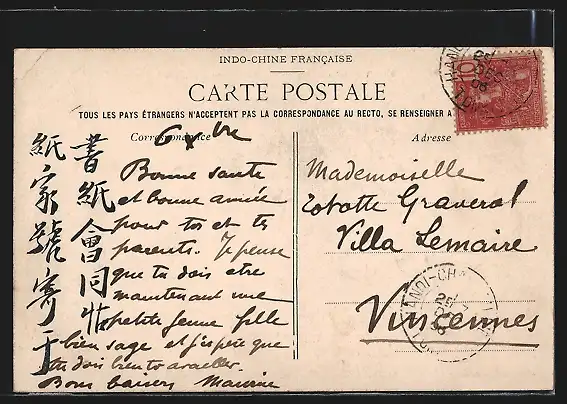 INDO-CHINE FRANÇAISE
CARTE POSTALE
TOUS LES PAYS ÉTRANGERS N'ACCEPTENT PAS LA CORRESPONDANCE AU RECTO, SE RENSEIGNER A
Correspondance
Adresse
Bonne santé
et bonne année
pour toi et tes
parents. Je pense
que tu dois etre
maintenant une
petite jeune fille
bien sage et j'espère que
tu dois bien travailler.
Bons baisers Maurice
書紙會同
紙家號寄于
Mademoiselle
Graveral
Villa Lemaire
Vincennes
10
HANOI
HANOI-
25